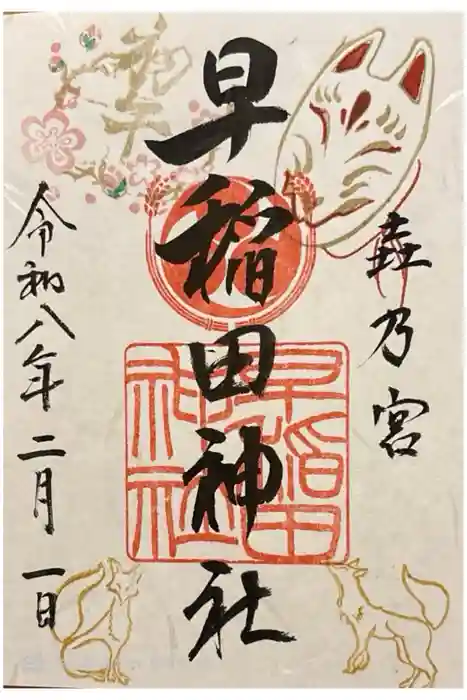 初午
乃宮
早稲田神社
早稲田
神社
令和八年二月一日